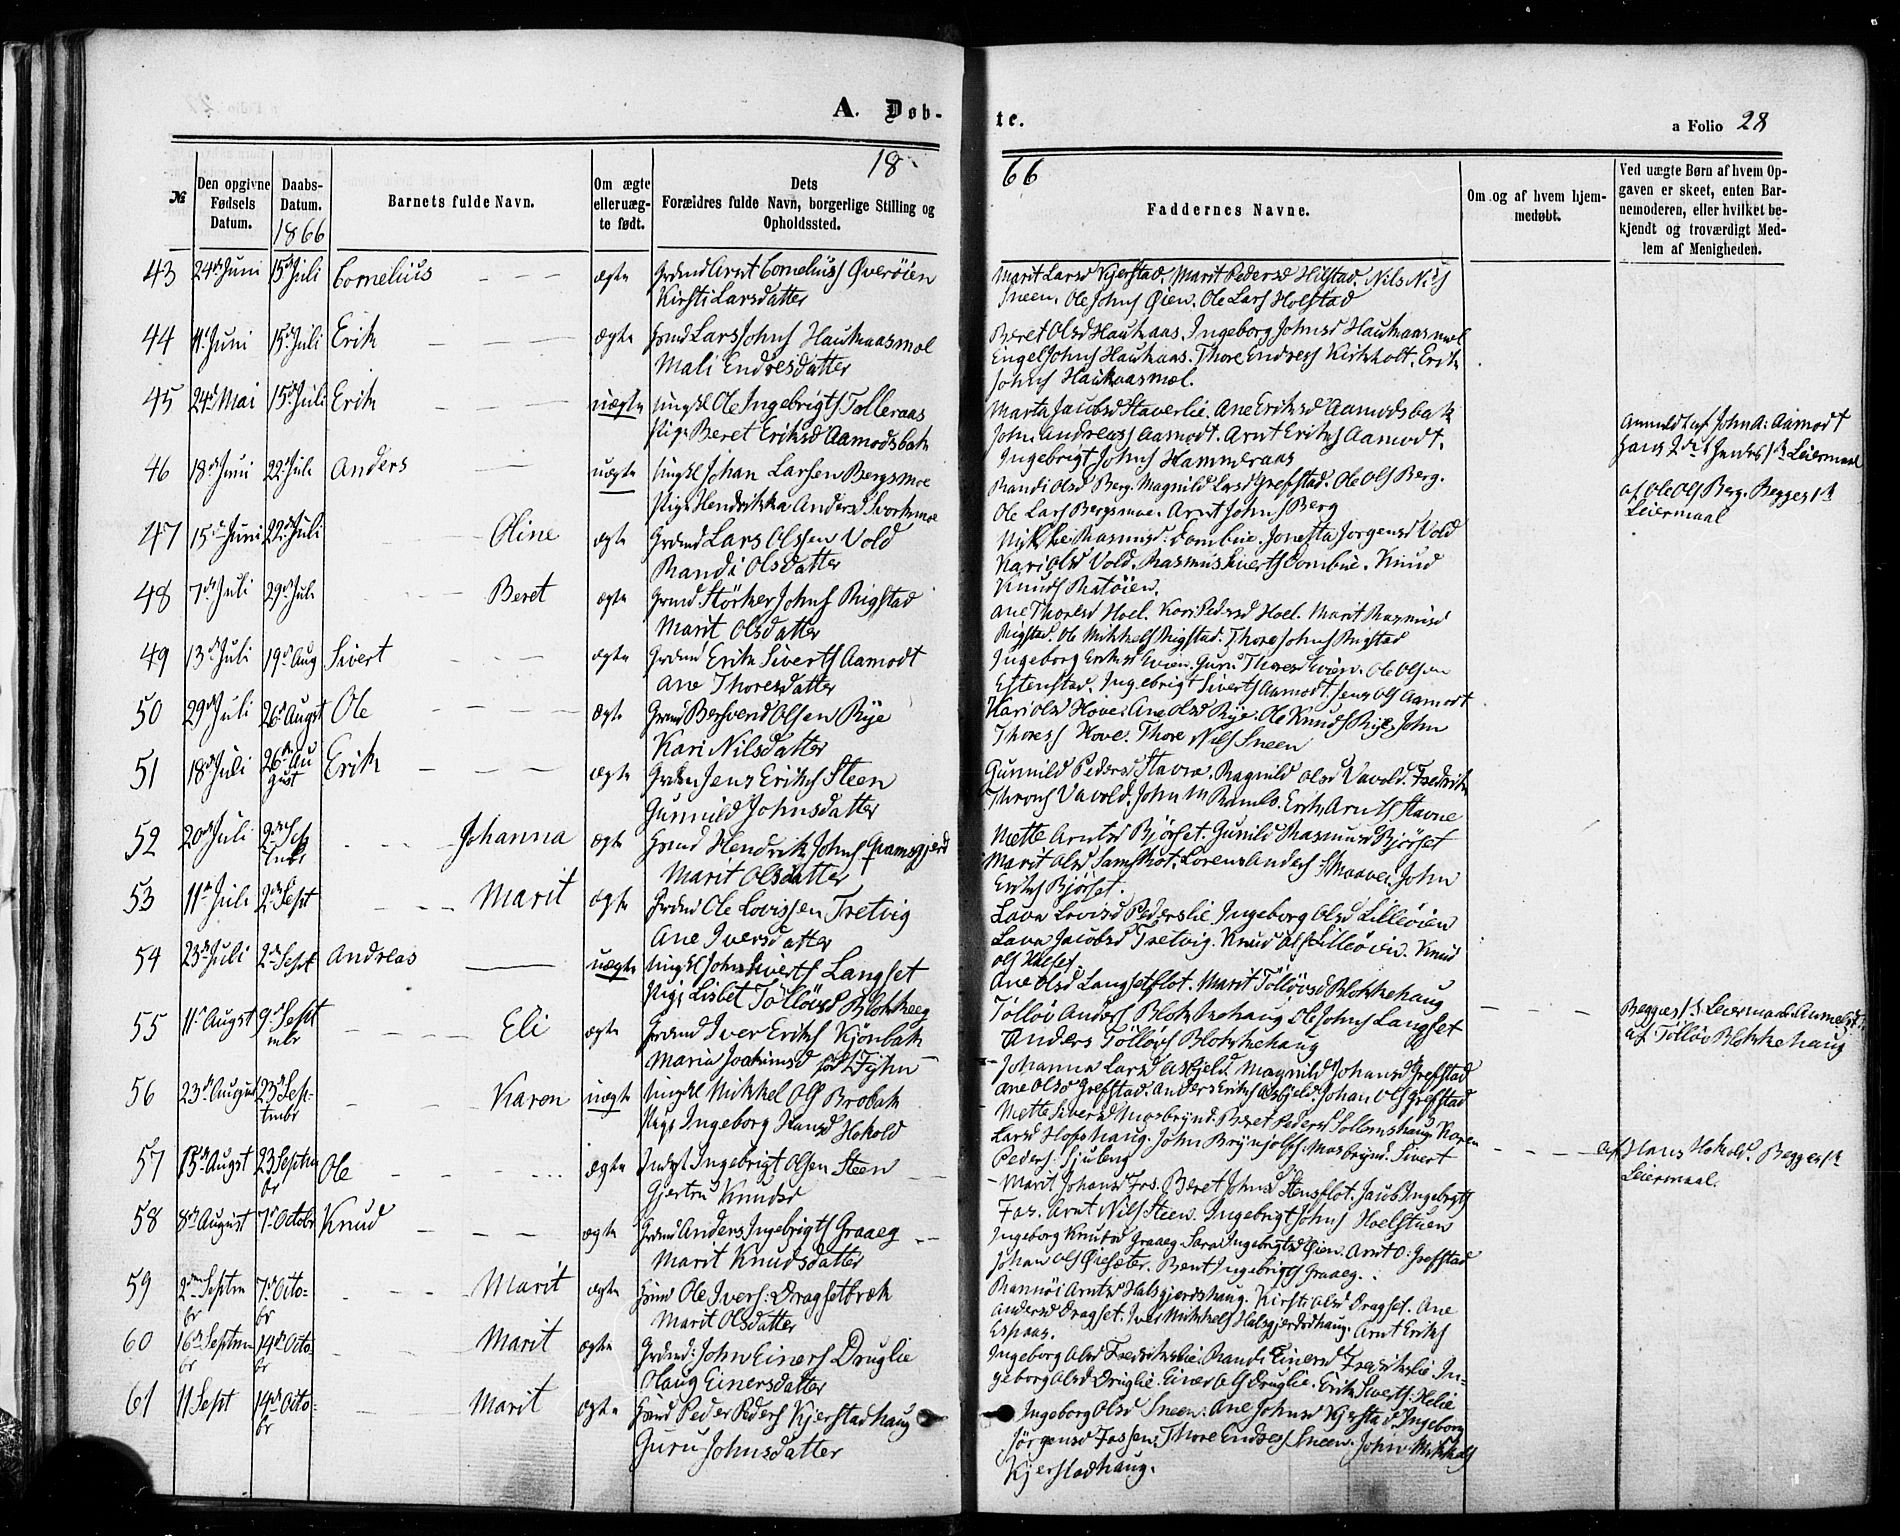 A. Døb-
te.
a Folio 28
18
66
№
Den opgivne Fødsels Datum.
Daabs-Datum.
1866
Barnets fulde Navn.
Om ægte eller uæg-te født.
Dets Forældres fulde Navn, borgerlige Stilling og Opholdssted.
Faddernes Navne.
Om og af hvem hjem-medøbt.
Ved uægte Børn af hvem Op-gaven er skeet, enten Bar-nemoderen, eller hvilket be-kjendt og troværdigt Med-lem af Menigheden.
43 24de Juni 15de Juli Cornelius ægte Grdmd Arnt Cornelius Øverøien
Kirsti Larsdatter
Marit Larsd Kjerstad. Marit Pedersd Hilstad. Nils Nils
Sneen. Ole Johns Øien. Ole Lars Holstad
44 4de Juni 15de Juli Erik ægte Hsmd Lars Johns Haukaasmoel
Mali Endresdatter
Beret Olsd Haukaas. Ingeborg Johnsd Haukaasmoel
Engel Johns Haukaas. Thore Endres Kirkholt. Erik
Johns Haukaasmoel.
45 24de Mai 15de Juli Erik uægte Ungkl Ole Ingebrigts Tolleraas
Pige Beret Eriksd Aamodsbak
Marta Jacobsd Staverlie. Ane Eriksd Aamodsbak
John Andreas Aamodt. Arnt Eriks Aamodt.
Ingebrigt Johns Hammeraas
Anmeldt af John A. Aamodt
hans 2det hendes 1ste Leiermaal
46 18de Juni 22de Juli Anders uægte Ungkl Johan Larsen Bergsmoe
Pige Hendrikka Andersd Svorkmoe
Randi Olsd Berg. Magnild Larsd Grefstad. Ole Ols Berg.
Ole Lars Bergsmoe. Arnt Johns Berg
af Ole Ols Berg. Begges 1ste
Leiermaal
47 15de Juni 22de Juli Oline ægte Grdmd Lars Olssen Vold
Randi Olsdatter
Jorgensd Vold
Kari Olsd Vold. Knud
Knuds Ratøien.
48 7de Juli 29de Juli Beret ægte Grdmd Størker Johns Rigstad
Marit Olsdatter
Ane Thoresd Hoel. Kari Pedersd Hoel. Marit Rasmusd
Rigstad. Ole Mikkels Rigstad. Thore Johns Rigstad
49 13de Juli 19de Aug Sivert ægte Grdmd Erik Siverts Aamodt
Ane Thoresdatter
Ingeborg Eriksd Evien. Guru Thoresd Evien. Ole Olsen
Estenstad. Ingebrigt Siverts Aamodt. Jens Ols Aamodt
50 29de Juli 26de Augst Ole ægte Grdmd Bersvend Olsen Rye
Kari Nilsdatter
Kari Olsd Hove. Ane Olsd Rye. Ole Knuds Rye. John
Thores Hove. Thore Nils Sneen
51 18de Juli 26de Au
gust Erik ægte Grdmd Jens Eriks Steen
Gunnild Johnsdatter
Gunnild Pedersd Stavne. Ragnild Olsd Vavold. Fredrik
Throns Vavold. John M Ramls. Erik Arnts Stavne
52 20de Juli 2den Sep
tmbr Johanna ægte Hsmd Hendrik Johns Gramsgjerd
Marit Olsdatter
Mette Arntsd Bjørset. Gunild Rasmusd Bjørset
Marit Olsd Lorens Anders John
Eriks Bjørset.
53 11te Juli 2den Sept Marit ægte Grdmd Ole Lovissen Tretvig
Ane Iversdatter
Lava Lovisd Pederslie. Ingeborg Olsd Lilleøien
Lava Jacobsd Tretvig. Knud Ols Lilleøien. Knud
Ols
54 23de Juli 2den Sept Andreas uægte Ungkl John Siverts Langset
Pige Lisbet Tølløvsd Blokkehaug
Ane Olsd Langsetflot. Marit Tølløvsd Blokkehaug
Tølløv Anders Blokkehaug Ole Johns Langset
Anders Tølløvs Blokkehaug
Begges 1ste Leiermaal. Anmeldt
af Tølløv Blokkehaug
55 11te Augst 9de Sept
mbr Eli ægte Grdmd Iver Eriks Kjønbak
Maria Joakimsd født Fyhn
Johanna Larsd Askjeld. Magnild Johansd Grefstad
Ane Olsd Grefstad. Anders Eriks Askjeld. Johan Ols Grefstad
56 23de August 23de Sep-
tmbr Karen uægte Ungkl Mikkel Ols Brobak
Pige Ingeborg Hansd Hokold
Mette Siversd Mosbrynd. Beret Pedersd Sollomshaug. Karen
Larsd Hoppehaug. John Brynjolfs Mosbrynd. Sivert
Peders: Sjuleng
af Hans Hokold. Begges 1ste
Leiermaal.
57 15de Augst 23de Septm
br Ole ægte Inderst Ingebrigt Olsen Steen
Gjertru Knudsd
Marit Johansd Fos. Beret Johnsd Stensflot. Jacob Ingebrigts
Fos. Arnt Nils Steen. Ingebrigt Johns Hoelstuen
58 8de August 7de Octobr Knud ægte Grdmd Anders Ingebrigts Graaeg
Marit Knudsdatter
Ingeborg Knutsd Graaeg. Sara Ingebrigtsd Øien. Arnt O: Grefstad
Johan Ols Øiesæter. Bent Ingebrigts Graaeg.
59 2den Septm
br 7de Octo-
br Marit ægte Hsmd Ole Ivers: Dragsetbræk
Marit Olsdatter
Rannøi Arntsd Halsgjerdshaug. Kirsti Olsd Dragset. Ane
Andersd Dragset. Iver Mikkels Halsgjerdshaug. Arnt Eriks
Espaas.
60 16de Septm
br 14de Octo-
br Marit ægte Grdmd: John Einers Druglie
Olaug Einersdatter
Ingeborg Olsd Fredrikslie. Randi Einersd Fredrikslie. In-
geborg Olsd Druglie. Einer Ols Druglie. Erik Siverts: Helie
61 11 Sept 14de Octo-
br Marit ægte Hsmd Peder Peders Kjerstadhaug
Guru Johnsdatter
Ingeborg Olsd Sneen. Ane Johnsd Kjerstad. Ingeborg
Jørgensd Fossen. Thore Endres Sneen. John Mikkels
Kjerstadhaug.